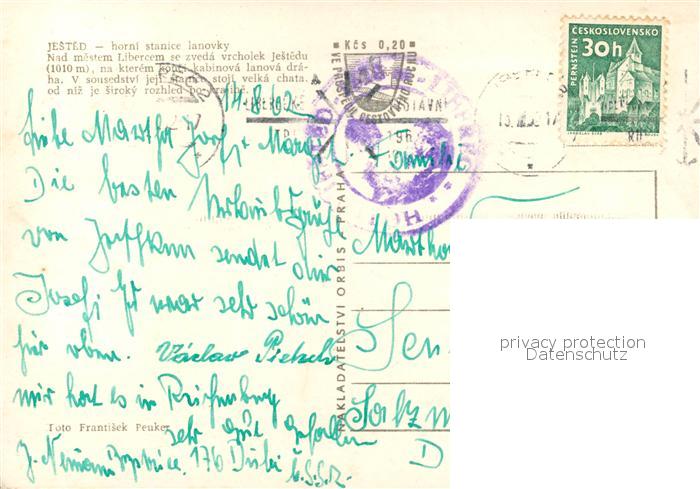 JEŠTĚD — horní stanice lanovky
Nad městem Libercem se zvedá vrcholek Ještědu
(1010 m), na kterém končí kabinová lanová drá-
ha. V sousedství její stanice stojí velká chata,
od níž je široký rozhled po krajině.
14.8.62
Liebe Martha Josef Margit Familie
Die besten Urlaubsgrüße
von Jeschken sendet dir
Josef; Es war sehr schön
hier oben. Václav
mir hat es in Reichenberg
sehr gut gefallen
Foto František Peuker
176 Dubi Č.S.S.R.
NAKLADATELSTVÍ ORBIS / PRAHA
Kčs 0,20
ČESKOSLOVENSKO
30h
PERNŠTEJN
Martha
Sen
Salzm
D
privacy protection
Datenschutz